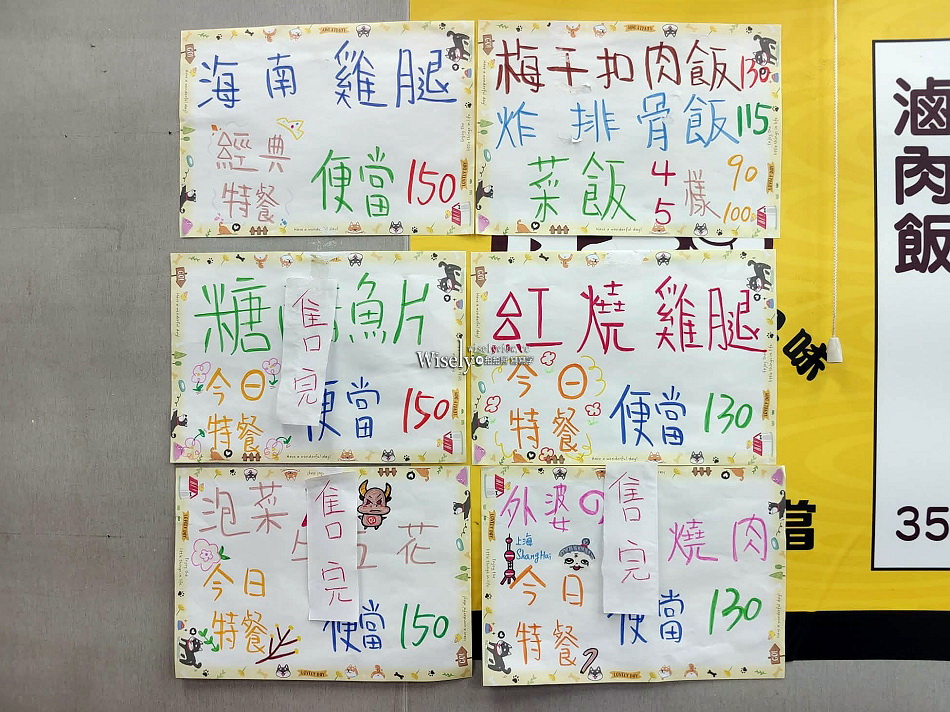 海南雞腿
經典
特餐
便當150
梅干扣肉飯130
炸排骨飯115
菜飯
4
5
樣
90
100
糖
魚片
售完
今日
特餐
便當150
紅燒雞腿
今日
特餐
便當130
泡菜
花
售完
今日
特餐
便當150
外婆の
燒肉
售完
上海
ShangHai
今日
特餐
便當130
滷肉飯
35
味
當
Wisely